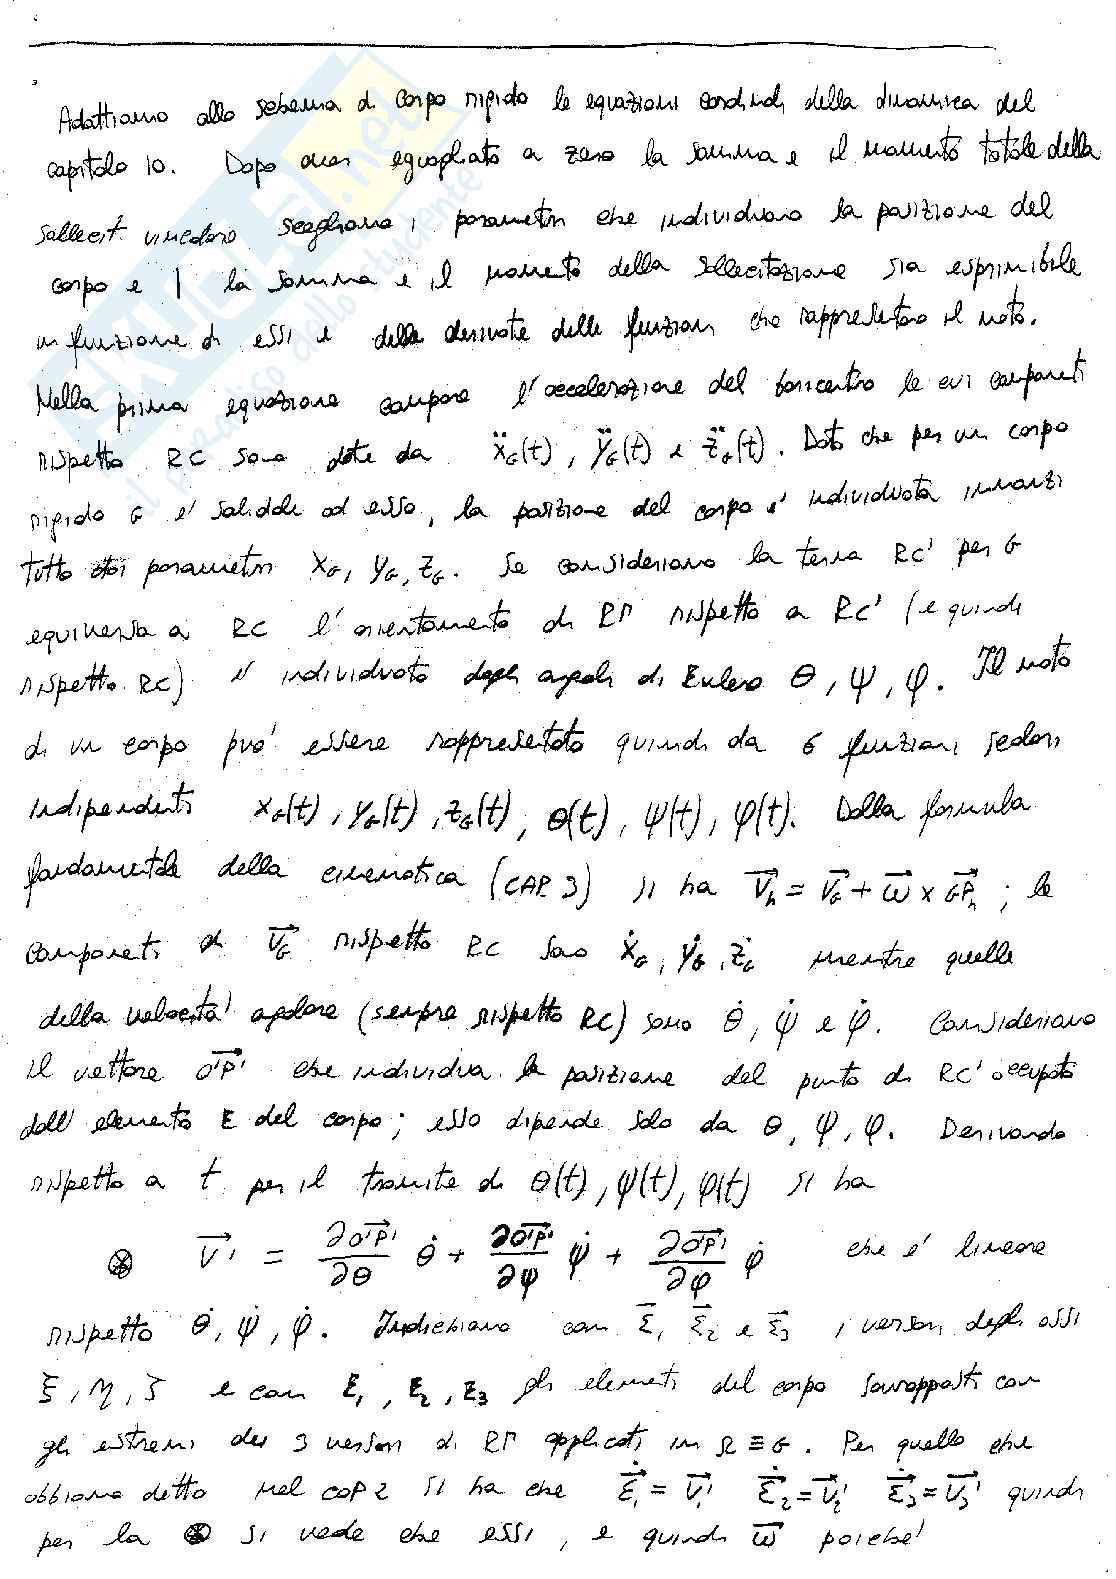 Adattiamo allo schema di corpo rigido le equazioni cardinali della dinamica del
capitolo 10. Dopo aver eguagliato a zero la somma e il momento totale della
sollecit. vincolare scegliamo i parametri che individuano la posizione del
corpo e | la somma e il momento della sollecitazione sia esprimibile
in funzione di essi e delle derivate delle funzioni che rappresentano il moto.
Nella prima equazione compare l'accelerazione del baricentro le cui componenti
rispetto RC sono date da ẍ_G(t), ÿ_G(t) e z̈_G(t). Dato che per un corpo
rigido G e' solidale ad esso, la posizione del corpo e' individuata innanzi
tutto dai parametri x_G, y_G, z_G. Se consideriamo la terna RC' per G
equiversa a RC l'orientamento di RΓ rispetto a RC' (e quindi
rispetto RC) e' individuato dagli angoli di Eulero θ, ψ, φ. Il moto
di un corpo puo' essere rappresentato quindi da 6 funzioni scalari
indipendenti x_G(t), y_G(t), z_G(t), θ(t), ψ(t), φ(t). Dalla formula
fondamentale della cinematica (CAP. 3) si ha v⃗_h = v⃗_G + ω⃗ × GP⃗_h ; le
componenti di v⃗_G rispetto RC sono ẋ_G, ẏ_G, ż_G mentre quelle
della velocita' angolare (sempre rispetto RC) sono θ̇, ψ̇ e φ̇. Consideriamo
il vettore O'P'⃗ che individua la posizione del punto di RC' occupato
dall'elemento E del corpo; esso dipende solo da θ, ψ, φ. Derivando
rispetto a t per il tramite di θ(t), ψ(t), φ(t) si ha
⊗ v⃗' = ∂O'P'⃗/∂θ θ̇ + ∂O'P'⃗/∂ψ ψ̇ + ∂O'P'⃗/∂φ φ̇ che e' lineare
rispetto θ̇, ψ̇, φ̇. Indichiamo con ε⃗_1, ε⃗_2 e ε⃗_3 i versori degli assi
ξ, η, ζ e con E_1, E_2, E_3 gli elementi del corpo sovrapposti con
gli estremi dei 3 versori di RΓ applicati in Ω ≡ G. Per quello che
abbiamo detto nel cap 2 si ha che ε⃗̇_1 = v⃗_1' ε⃗̇_2 = v⃗_2' ε⃗̇_3 = v⃗_3' quindi
per la ⊗ si vede che essi, e quindi ω⃗ poiche'
SKUOLA.net
il paradiso dello studente